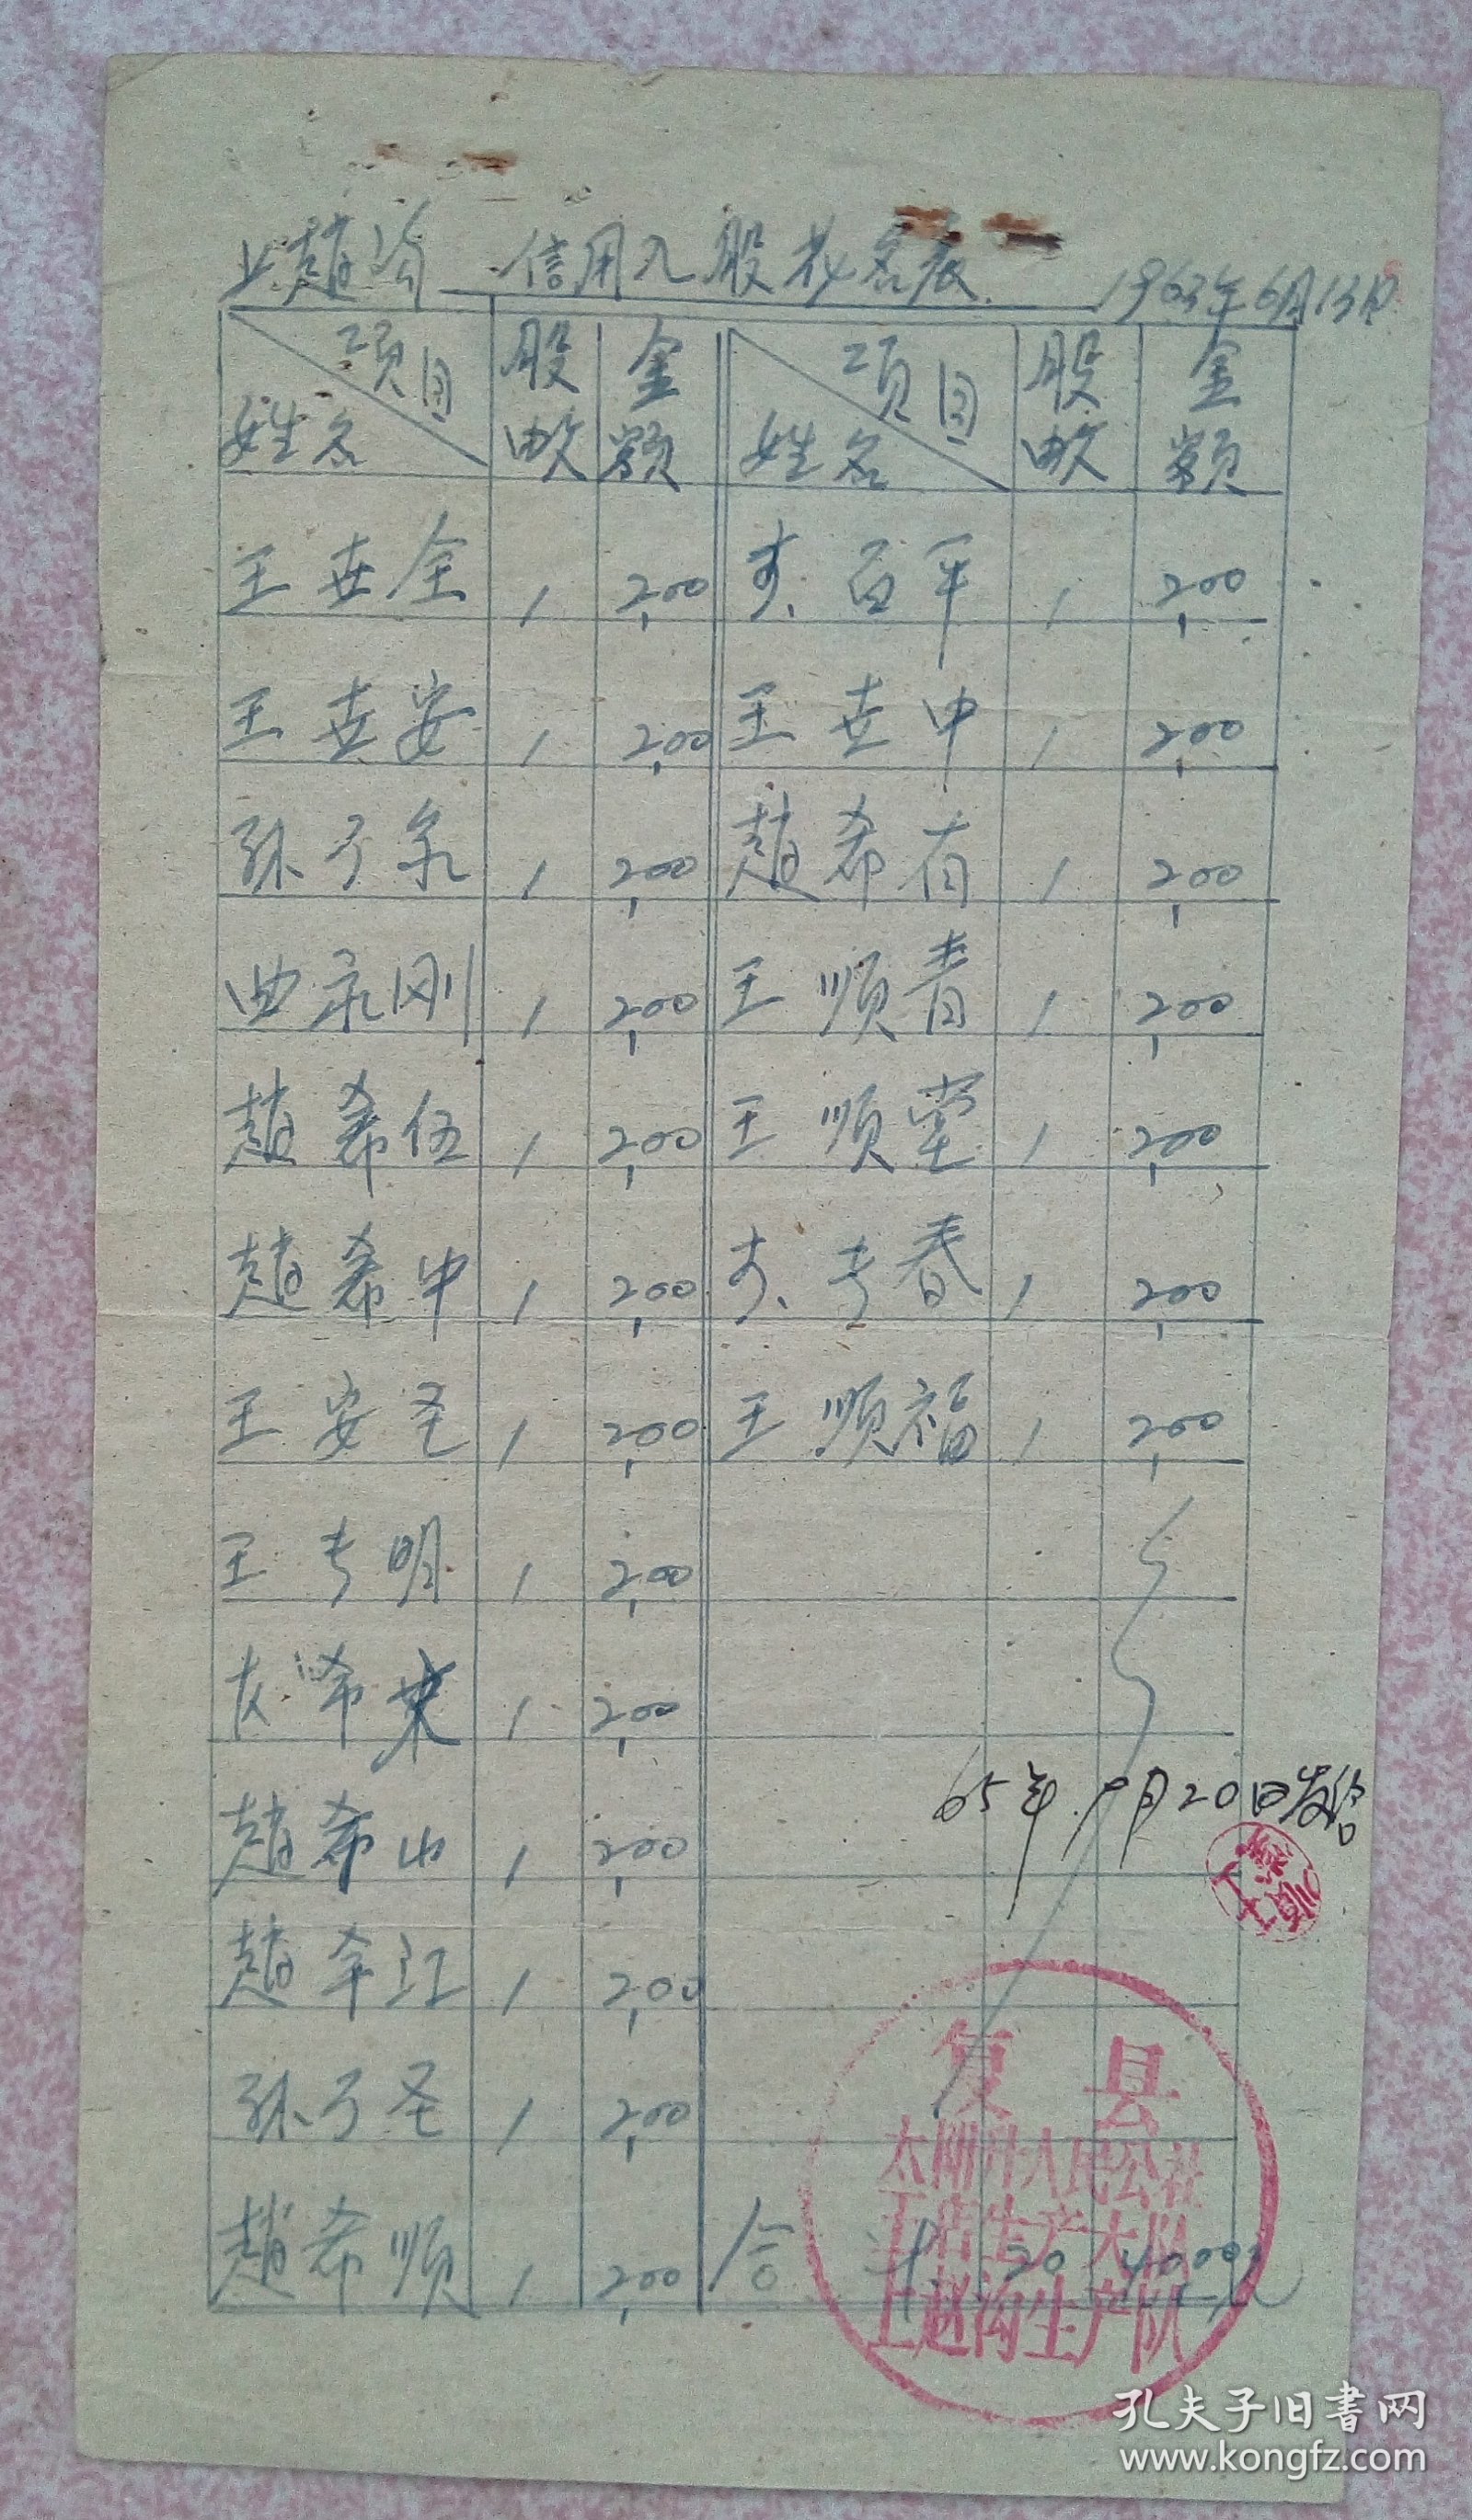 上趙沟 信用入股花名表 1963年6月13日
项目 股 金 项目 股 金
姓名 数 额 姓名 数 额
王世全 1 2,00 百平 1 2,00
王世安 1 2,00 王世中 1 2,00
孙于泉 1 2,00 趙希有 1 2,00
曲永刚 1 2,00 王顺青 1 2,00
趙希伍 1 2,00 王顺堂 1 2,00
趙希中 1 2,00 春 1 2,00
王安圣 1 2,00 王顺福 1 2,00
王 明 1 2,00
1 2,00
趙希山 1 2,00
65年 月20日发给
趙 江 1 2,00
孙于圣 1 2,00
趙希顺 1 2,00 合计 20 40,00元
复县
太阳升人民公社
王店生产大队
上赵沟生产队
孔夫子旧书网
www.kongfz.com